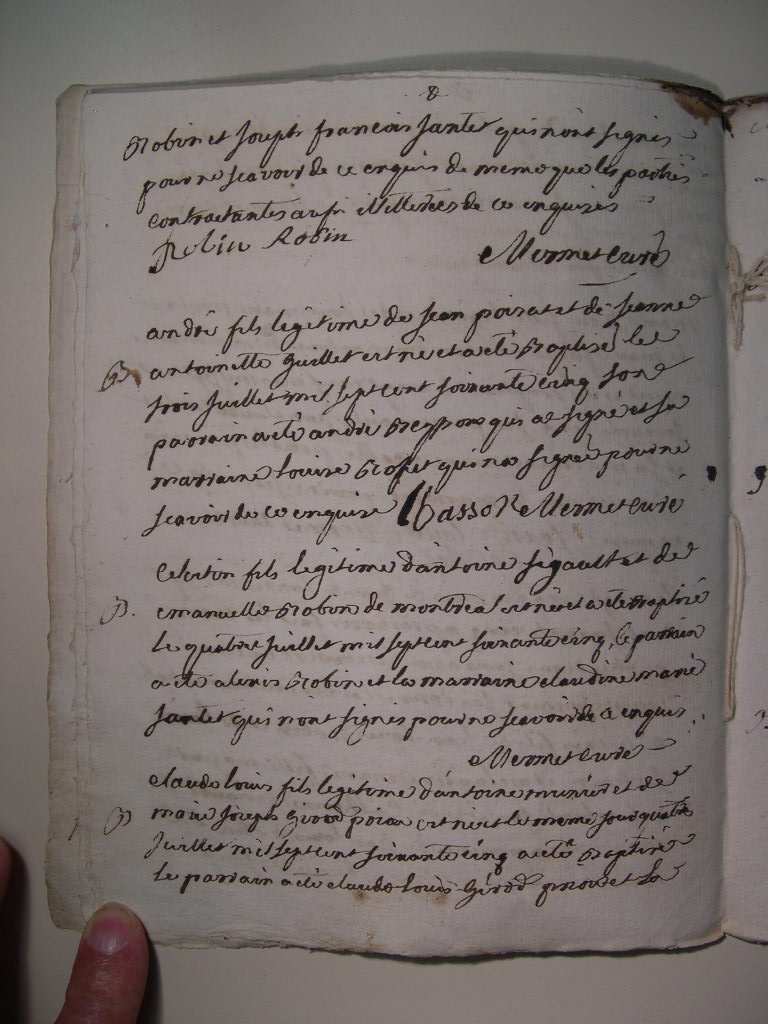 8
Robin et Joseph francois Jantet qui n'ont signés
pour ne scavoir de ce enquis de meme que les parties
contractantes aussi illitterées de ce enquises
Robin Mermet curé
andré fils legitime de jean poisat et de jeanne
B antoinette Guillet est né et a eté baptisé le
trois juillet mil sept cent soixante cinq son
parrain a eté andré qui a signé et sa
marraine louise qui na signée pour ne
scavoir de ce enquise Mermet curé
Celestin fils legitime d'antoine sigault et de
emanuelle Robin de montreal est né et a eté baptisé
le quatre juillet mil sept cent soixante cinq, le parrain
a eté alexis Robin et la marraine claudine marie
Jantet qui n'ont signés pour ne scavoir de ce enquis
Mermet curé
claude louis fils legitime d'antoine munier et de
marie joseph Girod est né le meme jour quatre
juillet mil sept cent soixante cinq a eté baptisé
le parrain a eté claude louis Girod et la